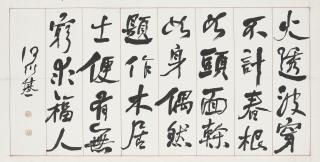 火透波穿
不計春根
如頭面榦
如身偶然
題作木居
士便有無
窮求福人
何紹基